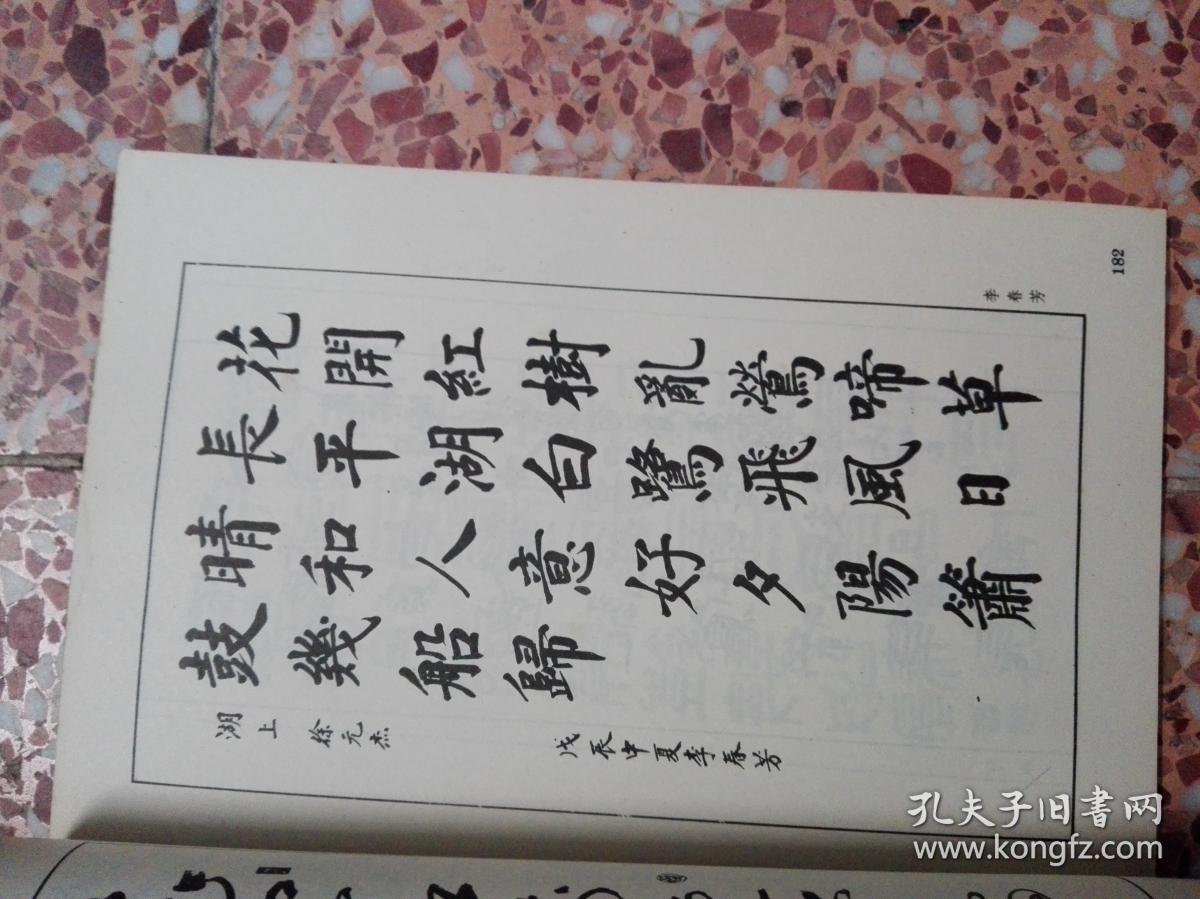 花開紅樹亂鶯啼草
長平湖白鷺飛風日
晴和人意好夕陽簫
鼓幾船歸
湖上 徐元杰 戊辰中夏李春芳
李春芳
182
孔夫子旧書网
www.kongfz.com